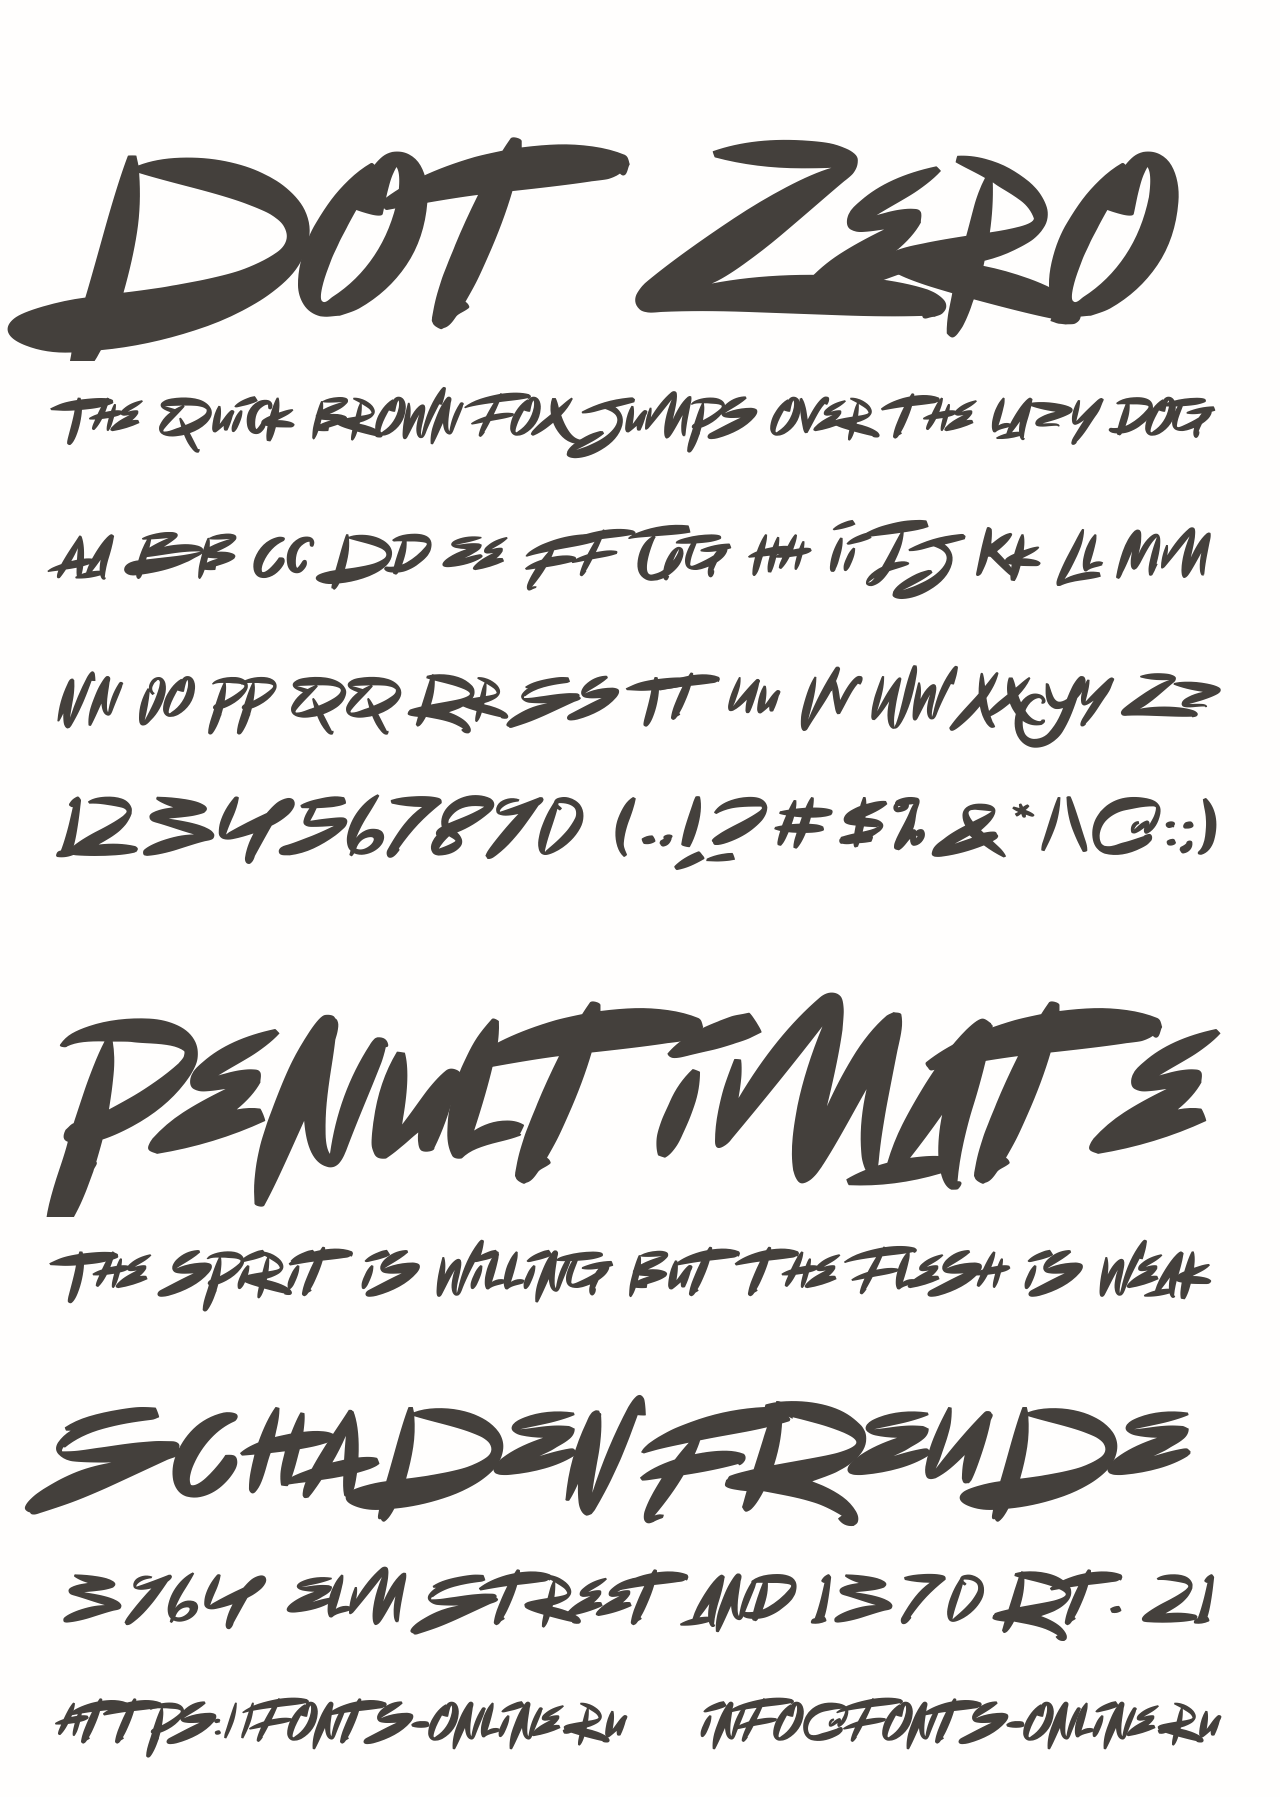 DOT ZERO
THE QUiCK BROWN FOX JuMPS OVER THE LAZY DOG
AA BB CC DD EE FF GG HH ii JJ KK LL MM
NN OO PP QQ RR SS TT uu VV WW XX YY ZZ
1234567890 (.,!?#$%&*/\@:;)
PENuLTiMATE
THE SPiRiT iS WiLLiNG BuT THE FLESH iS WEAK
SCHADENFREuDE
3964 ELM STREET AND 1370 RT. 21
HTTPS://FONTS-ONLiNE.Ru iNFO@FONTS-ONLiNE.Ru